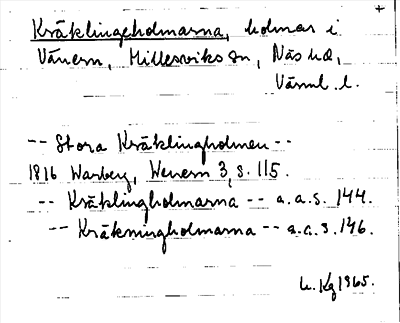 Kräklingeholmarna, holmar i
Vänern, Millesviks sn, Näs hd,
Värml. l.
-- Stora Kräklingholmen --
1816 Warberg, Wenern 3, s. 115.
-- Kräklingholmarna -- a.a.s. 144.
-- Kräkningholmarna -- a.a.s. 146.
Kg 1965.